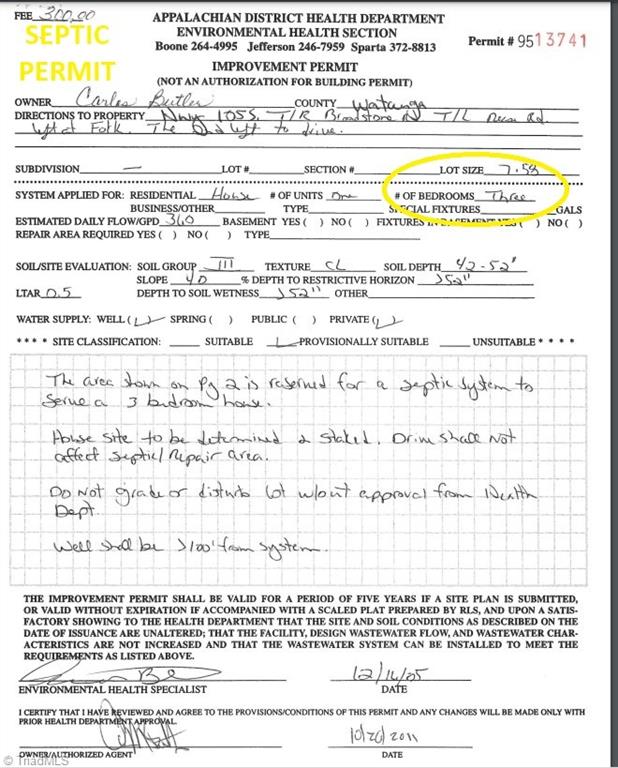 FEE 300.00
SEPTIC
PERMIT
APPALACHIAN DISTRICT HEALTH DEPARTMENT
ENVIRONMENTAL HEALTH SECTION
Boone 264-4995 Jefferson 246-7959 Sparta 372-8813
Permit # 9513741
IMPROVEMENT PERMIT
(NOT AN AUTHORIZATION FOR BUILDING PERMIT)
OWNER Carlos Butler COUNTY Watauga
DIRECTIONS TO PROPERTY Hwy 105S. T/R Broadstone Rd T/L Rd.
left at Fork. The 2nd left to drive.
SUBDIVISION — LOT # SECTION # LOT SIZE 7.58
SYSTEM APPLIED FOR: RESIDENTIAL House # OF UNITS One # OF BEDROOMS Three
BUSINESS/OTHER TYPE SPECIAL FIXTURES GALS
ESTIMATED DAILY FLOW/GPD 360 BASEMENT YES ( ) NO ( ) FIXTURES IN BASEMENT YES ( ) NO ( )
REPAIR AREA REQUIRED YES ( ) NO ( ) TYPE
SOIL/SITE EVALUATION: SOIL GROUP III TEXTURE CL SOIL DEPTH 42-52"
SLOPE 40 % DEPTH TO RESTRICTIVE HORIZON >52"
LTAR 0.5 DEPTH TO SOIL WETNESS >52" OTHER
WATER SUPPLY: WELL (✓) SPRING ( ) PUBLIC ( ) PRIVATE (✓)
* * * * SITE CLASSIFICATION: SUITABLE ✓ PROVISIONALLY SUITABLE UNSUITABLE * * * *
The area shown on Pg 2 is reserved for a septic system to
serve a 3 bedroom house.
House site to be determined & staked. Drive shall not
affect septic/repair area.
Do Not grade or disturb lot w/out approval from Health
Dept.
Well shall be >100' from system.
THE IMPROVEMENT PERMIT SHALL BE VALID FOR A PERIOD OF FIVE YEARS IF A SITE PLAN IS SUBMITTED,
OR VALID WITHOUT EXPIRATION IF ACCOMPANIED WITH A SCALED PLAT PREPARED BY RLS, AND UPON A SATIS-
FACTORY SHOWING TO THE HEALTH DEPARTMENT THAT THE SITE AND SOIL CONDITIONS AS DESCRIBED ON THE
DATE OF ISSUANCE ARE UNALTERED; THAT THE FACILITY, DESIGN WASTEWATER FLOW, AND WASTEWATER CHAR-
ACTERISTICS ARE NOT INCREASED AND THAT THE WASTEWATER SYSTEM CAN BE INSTALLED TO MEET THE
REQUIREMENTS AS LISTED ABOVE.
12/16/05
ENVIRONMENTAL HEALTH SPECIALIST DATE
I CERTIFY THAT I HAVE REVIEWED AND AGREE TO THE PROVISIONS/CONDITIONS OF THIS PERMIT AND ANY CHANGES WILL BE MADE ONLY WITH
PRIOR HEALTH DEPARTMENT APPROVAL.
10/26/2011
OWNER/AUTHORIZED AGENT DATE
© TriadMLS